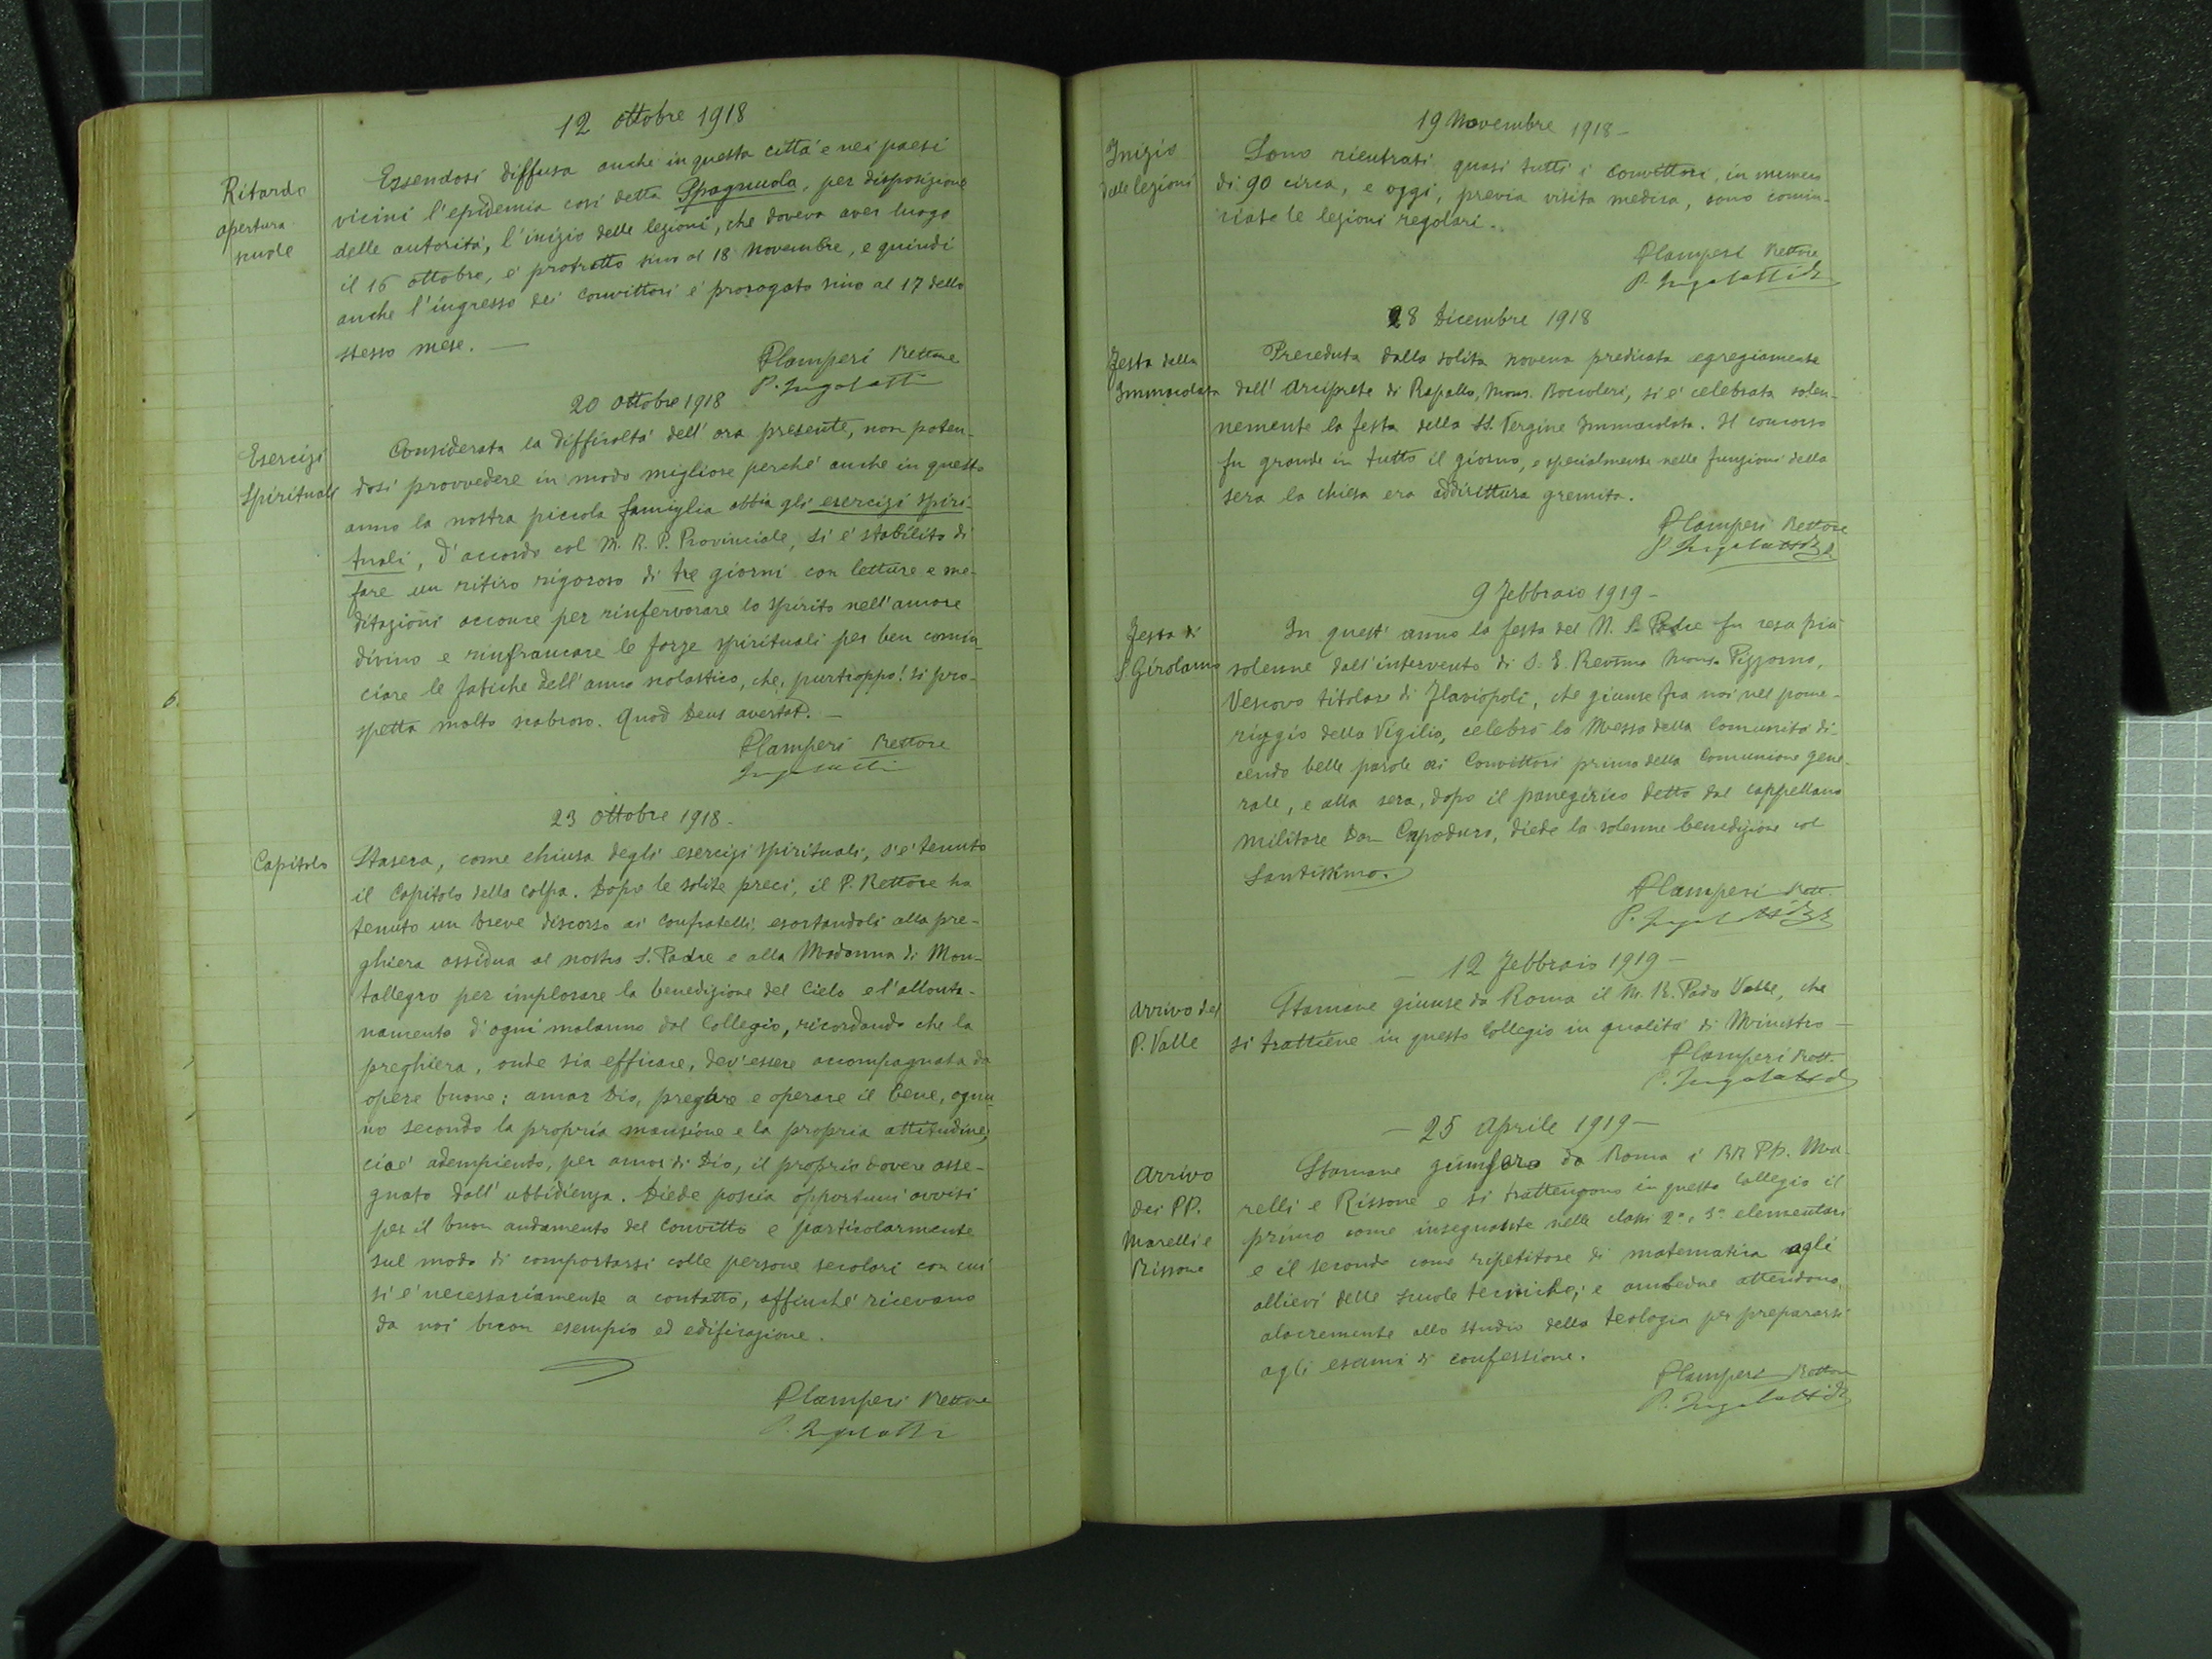 12 ottobre 1918
Ritardo
apertura
scuole
Essendosi diffusa anche in questa città e nei paesi
vicini l'epidemia così detta Spagnuola, per disposizione
delle autorità, l'inizio delle lezioni, che doveva aver luogo
il 16 ottobre, è protratto sino al 18 novembre, e quindi
anche l'ingresso dei Convittori è prorogato sino al 17 dello
stesso mese. —
P Lamperi Rettore
P. Ingolotti
20 ottobre 1918
Esercizi
Spirituali
Considerata la difficoltà dell'ora presente, non poten-
dosi provvedere in modo migliore perché anche in questo
anno la nostra piccola famiglia abbia gli esercizi spiri-
tuali, d'accordo col M. R. P. Provinciale, si è stabilito di
fare un ritiro rigoroso di tre giorni con letture e me-
ditazioni acconce per rinfervorare lo spirito nell'amore
divino e rinfrancare le forze spirituali per ben comin-
ciare le fatiche dell'anno scolastico, che, purtroppo! si pro-
spetta molto scabroso. Quod Deus avertat. —
P Lamperi Rettore
Ingolotti
23 ottobre 1918 -
Capitolo
Stasera, come chiusa degli esercizi spirituali, s'è tenuto
il Capitolo della Colpa. Dopo le solite preci, il P. Rettore ha
tenuto un breve discorso ai Confratelli, esortandoli alla pre-
ghiera assidua al nostro S. Padre e alla Madonna di Mon-
tallegro per implorare la benedizione del Cielo e l'allonta-
namento d'ogni malanno dal Collegio, ricordando che la
preghiera, onde sia efficace, dev'essere accompagnata da
opere buone: amar Dio, pregare e operare il bene, ognu-
no secondo la propria mansione e la propria attitudine,
cioè adempiendo, per amor di Dio, il proprio dovere asse-
gnato dall'ubbidienza. Diede poscia opportuni avvisi
per il buon andamento del Convitto e particolarmente
sul modo di comportarsi colle persone secolari con cui
si è necessariamente a contatto, affinché ricevano
da noi buon esempio ed edificazione.
P Lamperi Rettore
P. Ingolotti
19 Novembre 1918 -
Inizio
delle lezioni
Sono rientrati quasi tutti i convittori, in numero
di 90 circa, e oggi, previa visita medica, sono comin-
ciate le lezioni regolari.
P Lamperi Rettore
P. Ingolotti
8 Dicembre 1918
Festa della
Immacolata
Preceduta dalla solita novena predicata egregiamente
dall'Arciprete di Rapallo, Mons. Boccoleri, si è celebrata solen-
nemente la festa della SS. Vergine Immacolata. Il concorso
fu grande in tutto il giorno, e specialmente nelle funzioni della
sera la chiesa era addirittura gremita.
P Lamperi Rettore
P. Ingolotti
9 Febbraio 1919 -
Festa di
S Girolamo
In quest'anno la festa del N. S. Padre fu resa più
solenne dall'intervento di S. E. Rev.ma Mons. Pizzorno,
Vescovo titolare di Flaviopoli, che giunse fra noi nel pome-
riggio della Vigilia, celebrò la Messa della Comunità di-
cendo belle parole ai Convittori prima della Comunione gene-
rale, e alla sera, dopo il panegirico detto dal cappellano
militare Don Capoduro, diede la solenne benedizione col
Santissimo.
P Lamperi Rett.
P. Ingolotti
- 12 Febbraio 1919 -
Arrivo del
P. Valle
Stamane giunse da Roma il M. R. Padre Valle, che
si trattiene in questo Collegio in qualità di Ministro —
P Lamperi Rett.
P. Ingolotti
- 25 Aprile 1919 -
Arrivo
dei PP.
Marelli e
Rissone
Stamane giunsero da Roma i RR PP. Ma-
relli e Rissone e si trattengono in questo Collegio il
primo come insegnante nelle classi 2ª e 3ª elementari
e il secondo come ripetitore di matematica agli
allievi delle scuole tecniche; e ambedue attendono
alacremente allo studio della teologia per prepararsi
agli esami di confessione.
P Lamperi Rettore
P. Ingolotti